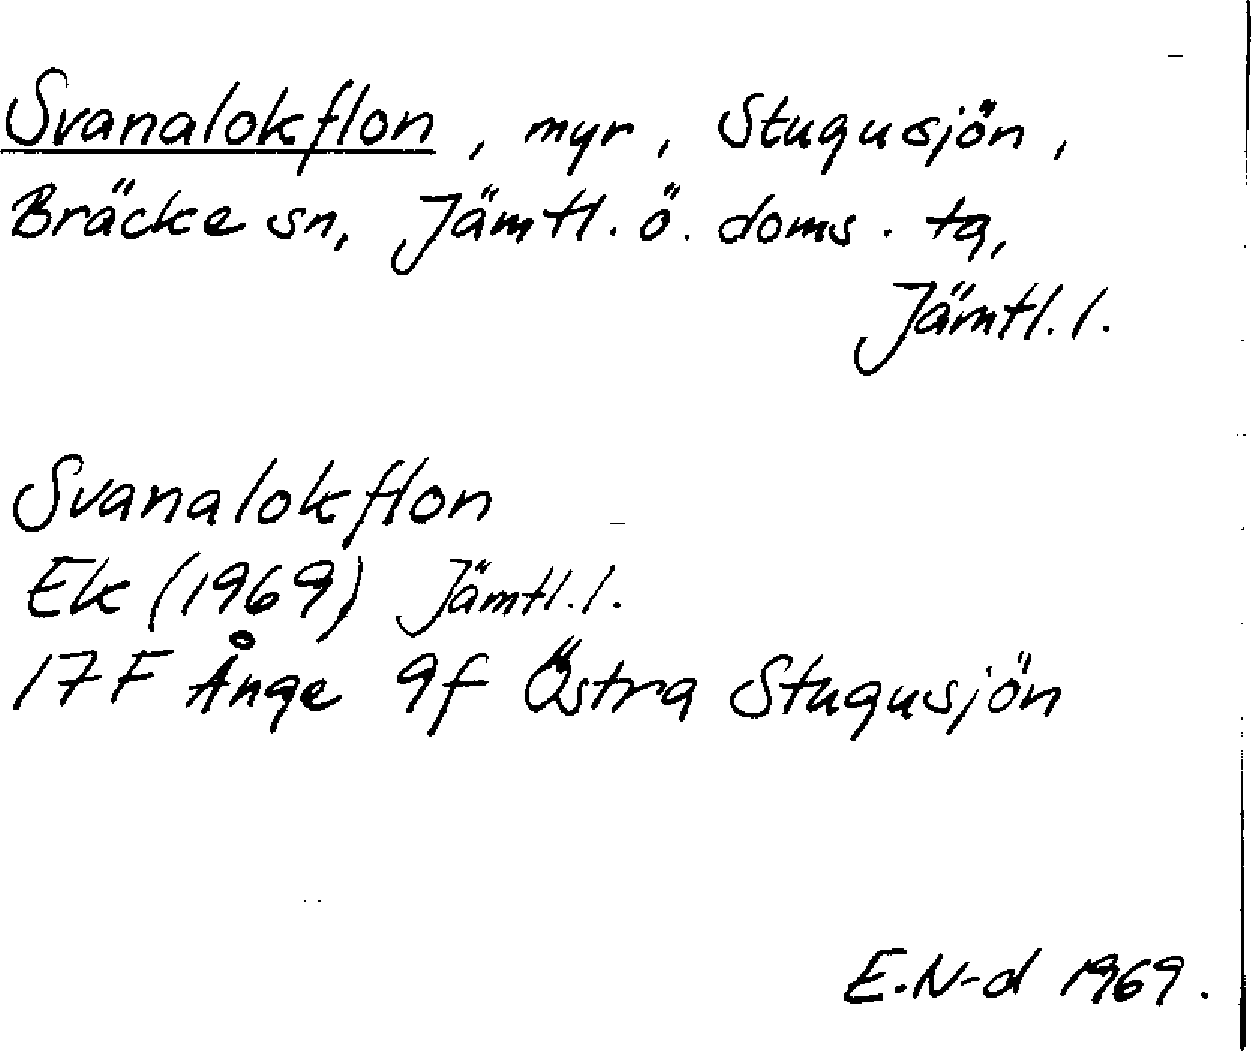 Svanalokflon, myr, Stugusjön,
Bräcke sn, Jämtl. ö. doms. tg,
Jämtl. l.
Svanalokflon
Ek (1969) Jämtl. l.
17 F Ånge 9f Östra Stugusjön
E.N-d 1969.